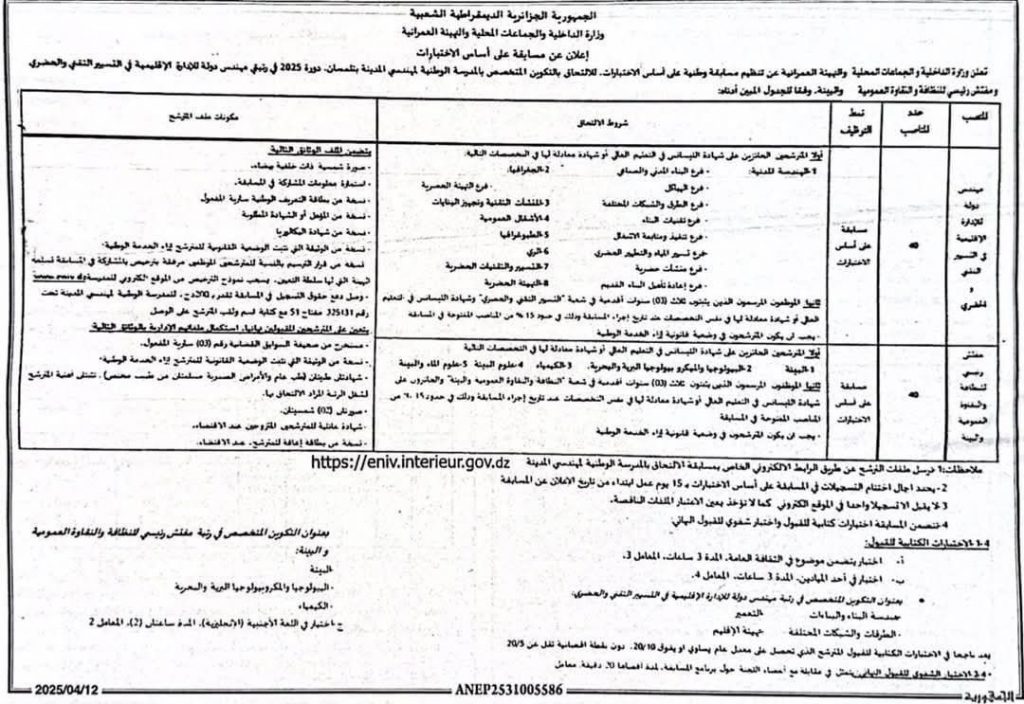 الجمهورية الجزائرية الديمقراطية الشعبية
وزارة الداخلية والجماعات المحلية والتهيئة العمرانية
إعلان عن مسابقة على أساس الاختبارات
تعلن وزارة الداخلية و الجماعات المحلية والتهيئة العمرانية عن تنظيم مسابقة وطنية على أساس الاختبارات، للالتحاق بالتكوين المتخصص بالمدرسة الوطنية لمهندسي المدينة بتلمسان، دورة 2025 في رتبتي مهندس دولة للإدارة الإقليمية في التسيير التقني والحضري
ومفتش رئيسي للنظافة والنقاوة العمومية والبيئة، وفقا للجدول المبين أدناه:
المنصب
عدد المناصب
نمط التوظيف
شروط الالتحاق
مكونات ملف المترشح
مهندس
دولة
للإدارة
الإقليمية
في التسيير
التقني
و
الحضري
40
مسابقة
على أساس
الاختبارات
أولا: المترشحين الحائزين على شهادة الليسانس في التعليم العالي أو شهادة معادلة لها في التخصصات التالية:
1-الهندسة المدنية: - فرع البناء المدني والصناعي
- فرع الهياكل
- فرع الطرق والشبكات المختلفة
- فرع تقنيات البناء
- فرع تنفيذ ومتابعة الاشغال
- فرع تسيير المياه والتطهير الحضري
- فرع منشآت حضرية
- فرع إعادة تأهيل البناء القديم
2-الجغرافيا:
- فرع التهيئة الحضرية
3-المنشآت التقنية وتجهيز البنايات
4-الأشغال العمومية
5-الطبوغرافيا
6-الري
7-التسيير والتقنيات الحضرية
8-التهيئة الحضرية
ثانيا: الموظفون المرسمون الذين يثبتون ثلاث (03) سنوات أقدمية في شعبة "التسيير التقني والحضري" وشهادة الليسانس في التعليم
العالي أو شهادة معادلة لها في نفس التخصصات عند تاريخ إجراء المسابقة وذلك في حدود 15 % من المناصب المفتوحة في المسابقة
- يجب ان يكون المترشحون في وضعية قانونية إزاء الخدمة الوطنية
مفتش
رئيسي
للنظافة
والنقاوة
العمومية
والبيئة
40
مسابقة
على أساس
الاختبارات
أولا: المترشحين الحائزين على شهادة الليسانس في التعليم العالي أو شهادة معادلة لها في التخصصات التالية:
1-البيئة 2-البيولوجيا والميكرو بيولوجيا البرية والبحرية. 3-الكيمياء 4-علوم البيئة 5-علوم الماء والبيئة
ثانيا: الموظفون المرسمون الذين يثبتون ثلاث (03) سنوات أقدمية في شعبة "النظافة والنقاوة العمومية والبيئة" والحائزون على
شهادة الليسانس في التعليم العالي أو شهادة معادلة لها في نفس التخصصات عند تاريخ إجراء المسابقة وذلك في حدود من
المناصب المفتوحة في المسابقة
- يجب ان يكون المترشحون في وضعية قانونية إزاء الخدمة الوطنية
يتضمن الملف الوثائق التالية:
- صورة شمسية ذات خلفية بيضاء.
- استمارة معلومات المشاركة في المسابقة.
- نسخة من بطاقة التعريف الوطنية سارية المفعول
- نسخة من المؤهل أو الشهادة المطلوبة
- نسخة من شهادة البكالوريا
- نسخة من الوثيقة التي تثبت الوضعية القانونية للمترشح إزاء الخدمة الوطنية-
- نسخة من قرار الترسيم بالنسبة للمترشحين الموظفين مرفقة بترخيص بالمشاركة في المسابقة تسلمه
الهيئة التي لها سلطة التعيين، يسحب نموذج الترخيص من الموقع الكتروني للمدرسة
- وصل دفع حقوق التسجيل في المسابقة تقدر للمدرسة الوطنية لمهندسي المدينة تحت
رقم 325131 مفتاح 51 مع كتابة اسم ولقب المترشح على الوصل
يتعين على المترشحين المقبولين نهائيا، استكمال ملفاتهم الإدارية بالوثائق التالية:
- مستخرج من صحيفة السوابق القضائية رقم (03) سارية المفعول.
- نسخة من الوثيقة التي تثبت الوضعية القانونية للمترشح إزاء الخدمة الوطنية-
- شهادتان طبيتان (طب عام والأمراض الصدرية مسلمتان من طبيب مختص)، تثبتان أهلية المترشح
لشغل الرتبة المراد الالتحاق بها.
- صورتان (02) شمسيتان.
- شهادة عائلية للمترشحين المتزوجين عند الاقتضاء.
- نسخة من بطاقة إعاقة للمترشح، عند الاقتضاء.
ملاحظات: 1 ترسل ملفات الترشح عن طريق الرابط الالكتروني الخاص بمسابقة الالتحاق بالمدرسة الوطنية لمهندسي المدينة https://eniv.interieur.gov.dz
2- يحدد اجال اختتام التسجيلات في المسابقة على أساس الاختبارات بـ 15 يوم عمل ابتداء من تاريخ الاعلان عن المسابقة
3-لا يقبل الا تسجيلا واحدا في الموقع الكتروني كما لا تؤخذ بعين الاعتبار الملفات الناقصة.
4-تتضمن المسابقة اختبارات كتابية للقبول واختبار شفوي للقبول النهائي:
4-1 الاختبارات الكتابية للقبول:
أ- اختبار يتضمن موضوع في الثقافة العامة، المدة 3 ساعات، المعامل 3.
ب- اختبار في أحد الميادين، المدة 3 ساعات، المعامل 4.
• بعنوان التكوين المتخصص في رتبة مهندس دولة للإدارة الإقليمية في التسيير التقني والحضري:
-هندسة البناء والبنايات -التعمير
-الطرقات والشبكات المختلفة -تهيئة الإقليم
بعنوان التكوين المتخصص في رتبة مفتش رئيسي للنظافة والنقاوة العمومية
والبيئة:
-البيئة
-البيولوجيا والمكروبيولوجيا البرية والبحرية
-الكيمياء
ج- اختبار في اللغة الأجنبية (الإنجليزية)، المدة ساعتان (2)، المعامل 2
يعد ناجحا في الاختبارات الكتابية للقبول المترشح الذي تحصل على معدل عام يساوي او يفوق 20/10، دون نقطة اقصائية تقل عن 20/5
4-2 الاختبار الشفوي للقبول النهائي: يتمثل في مقابلة مع أعضاء اللجنة حول برنامج المسابقة، لمدة أقصاها 20 دقيقة، معامل
2025/04/12
ANEP2531005586
الجمهورية